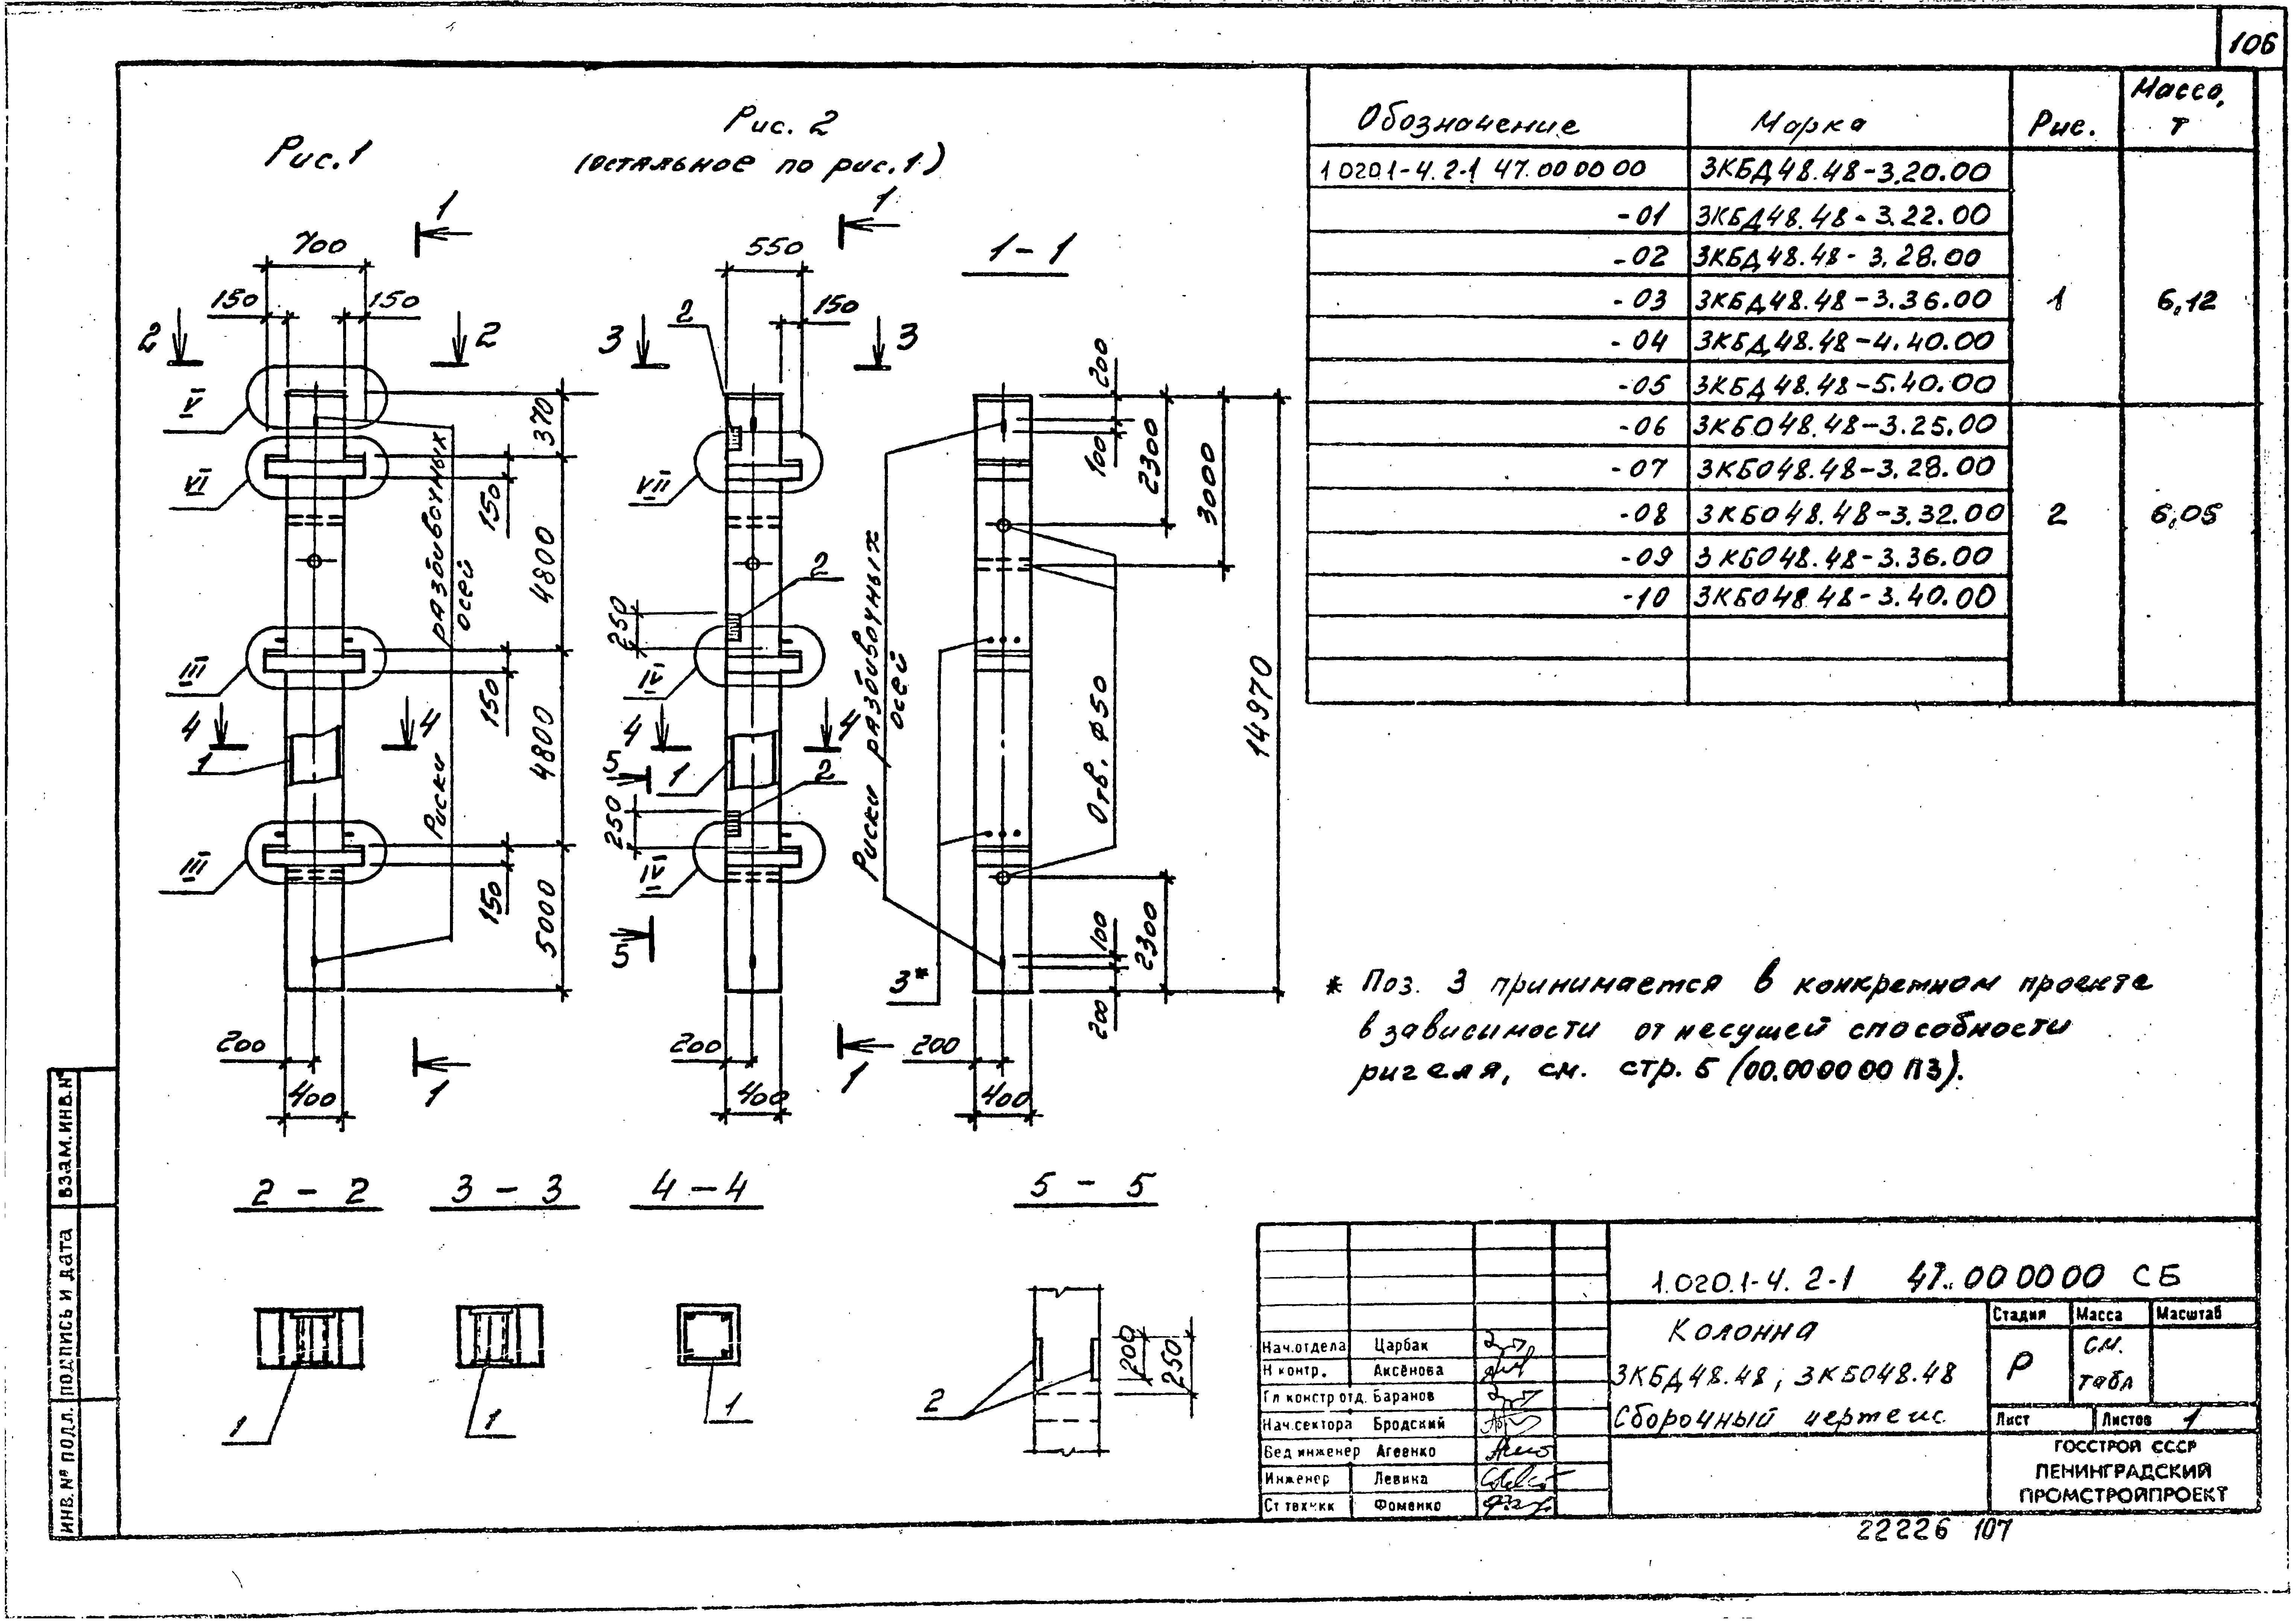 106
Рис. 1
Рис. 2
(остальное по рис. 1)
1-1
700
150
150
550
150
1
1
2
2
3
3
2
V
VI
III
III
VII
IV
IV
370
4800
4800
5000
150
150
150
Риски разбивочных осей
250
250
2
2
4
4
4
4
5
5
1
1
200
400
200
400
200
400
1
1
200
100
2300
3000
14970
Отв. ф50
Риски разбивочных осей
3*
100
200
2300
Обозначение Марка Рис. Масса, т
1.020.1-4.2-1 47.00 00 00 3КБД48.48-3.20.00
-01 3КБД48.48-3.22.00
-02 3КБД48.48-3.28.00
-03 3КБД48.48-3.36.00 1 6,12
-04 3КБД48.48-4.40.00
-05 3КБД48.48-5.40.00
-06 3КБО48.48-3.25.00
-07 3КБО48.48-3.28.00
-08 3КБО48.48-3.32.00 2 6,05
-09 3КБО48.48-3.36.00
-10 3КБО48.48-3.40.00
* Поз. 3 принимается в конкретном проекте
в зависимости от несущей способности
ригеля, см. стр. 5 (00.00 00 00 ПЗ).
2 - 2
3 - 3
4 - 4
5 - 5
1
1
1
2
200
250
1.020.1-4.2-1 47.00 00 00 СБ
Колонна
3КБД48.48; 3КБО48.48
Сборочный чертеж
Стадия Масса Масштаб
Р см. табл
Лист Листов 1
ГОССТРОЙ СССР
ЛЕНИНГРАДСКИЙ
ПРОМСТРОЙПРОЕКТ
Нач.отдела Царбак
Н контр. Аксёнова
Гл констр отд. Баранов
Нач.сектора Бродский
Вед инженер Агеенко
Инженер Левина
Ст техник Фоменко
ИНВ.№ ПОДЛ. ПОДПИСЬ И ДАТА ВЗАМ.ИНВ.№
22226 107